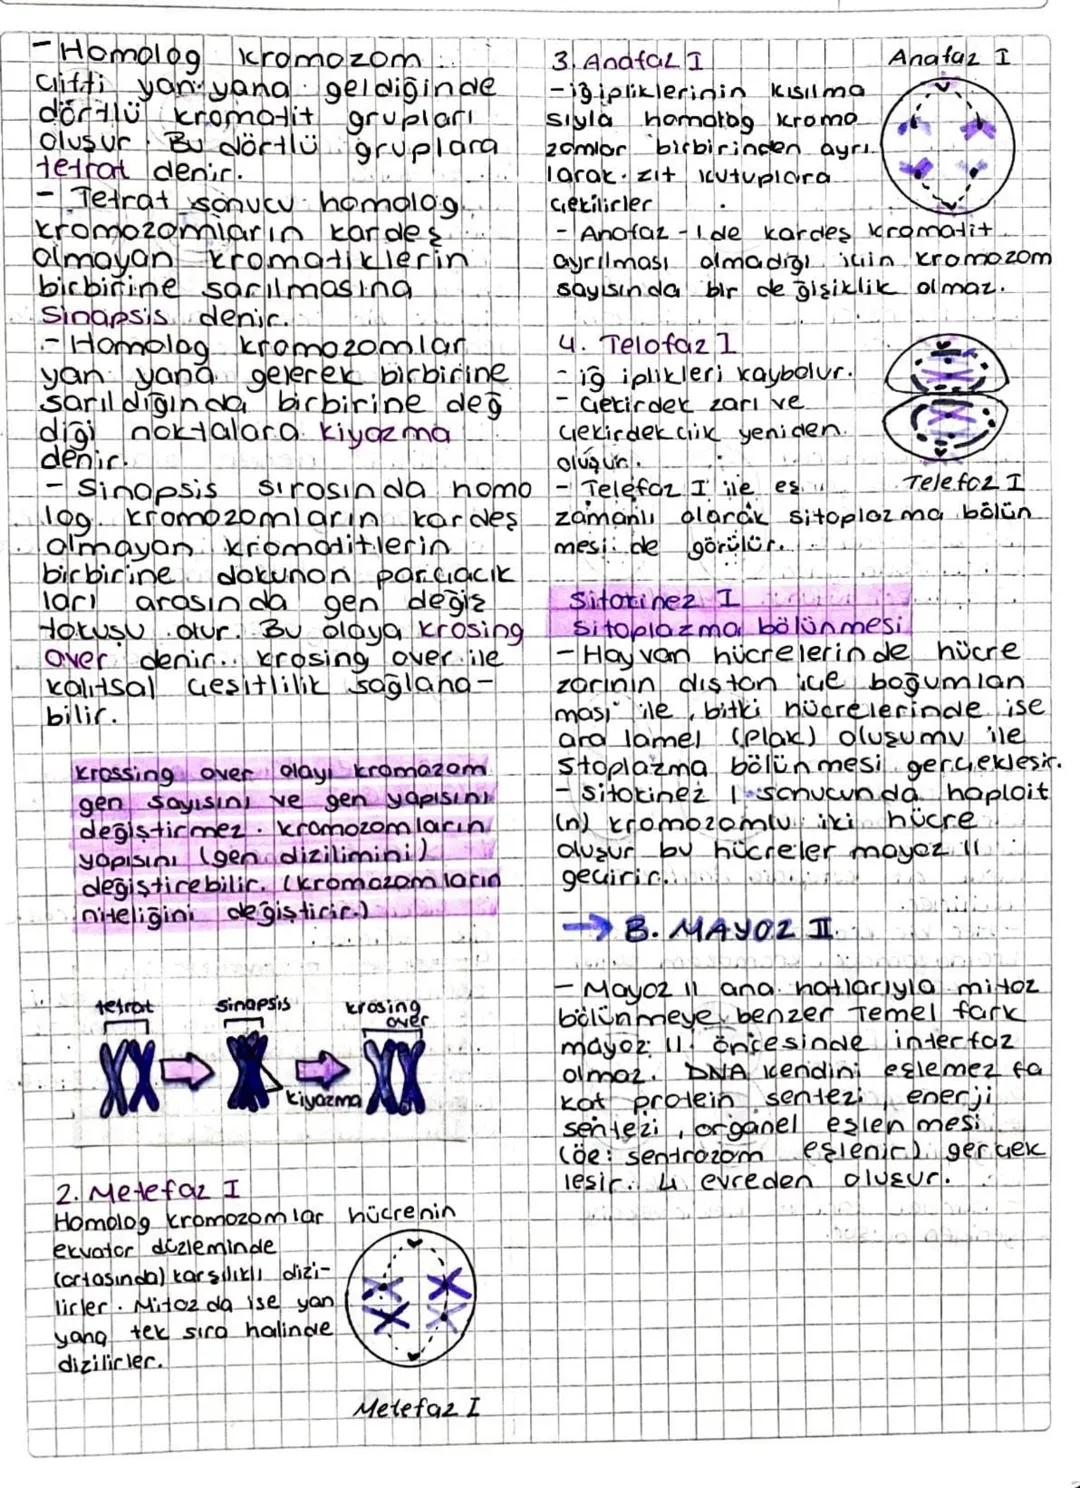 - Homolog kromozom
çifti yan yana geldiğinde
dörtlü kromotit grupları
oluşur. Bu dörtlü gruplara
tetrat denir.
- Tetrat sonucu homolog
kromozomların kardeş
olmayan kromatiklerin
birbirine sarılmasına
Sinapsis denir.
- Homolog kromozomlar
yan yana gelerek birbirine
sarıldığında birbirine değ
diği noktalara kiyazma
denir.
- Sinapsis sırasında homo
log kromozomların kardeş
olmayan kromatitlerin
birbirine dokunan parçacık
ları arasında gen değiş
tokuşu olur. Bu olaya krosing
over denir. krosing over ile
kalıtsal çeşitlilik sağlana-
bilir.
krossing over olayı kromozom
gen sayısını ve gen yapısını
değiştirmez. kromozomların
yapısını (gen dizilimini)
değiştirebilir. (kromozomların
niteliğini değiştirir.)
tetrat
sinapsis
krosing
over
kiyazma
2. Metefaz I
Homolog kromozomlar hücrenin
ekvator düzleminde
(ortasında) karşılıklı dizi-
lirler. Mitozda ise yan
yana tek sıra halinde
dizilirler.
Metefaz I
3. Anafaz I
- iğ ipliklerinin kısılma
sıyla homolog kromo
zomlar birbirinden ayrı
larak zıt kutuplara
çekilirler
Anafaz I
- Anafaz-I de kardeş kromatit
ayrılması olmadığı için kromozom
sayısında bir değişiklik olmaz.
4. Telofaz I
- iğ iplikleri kaybolur.
- Çekirdek zarı ve
çekirdekçik yeniden
oluşur.
Telefaz I
- Telefaz I ile eş
zamanlı olarak sitoplazma bölün
mesi de görülür.
Sitokinez I
Sitoplazma bölünmesi
- Hayvan hücrelerinde hücre
zarının dıştan içe boğumlan
ması ile, bitki hücrelerinde ise
ara lamel (plak) oluşumu ile
Stoplazma bölünmesi gerçekleşir.
- Sitokinez I sonucunda haploit
(n) kromozomlu iki hücre
oluşur bu hücreler mayoz II
geçirir.
→ B. MAYOZ II
- Mayoz II ana hatlarıyla mitoz
bölünmeye benzer Temel fark
mayoz II öncesinde interfaz
olmaz. DNA kendini eşlemez fa
kat protein sentezi, enerji
sentezi, organel eşlenmesi
(öe: sentrozom eşlenir) gerçek
leşir. 4 evreden oluşur.